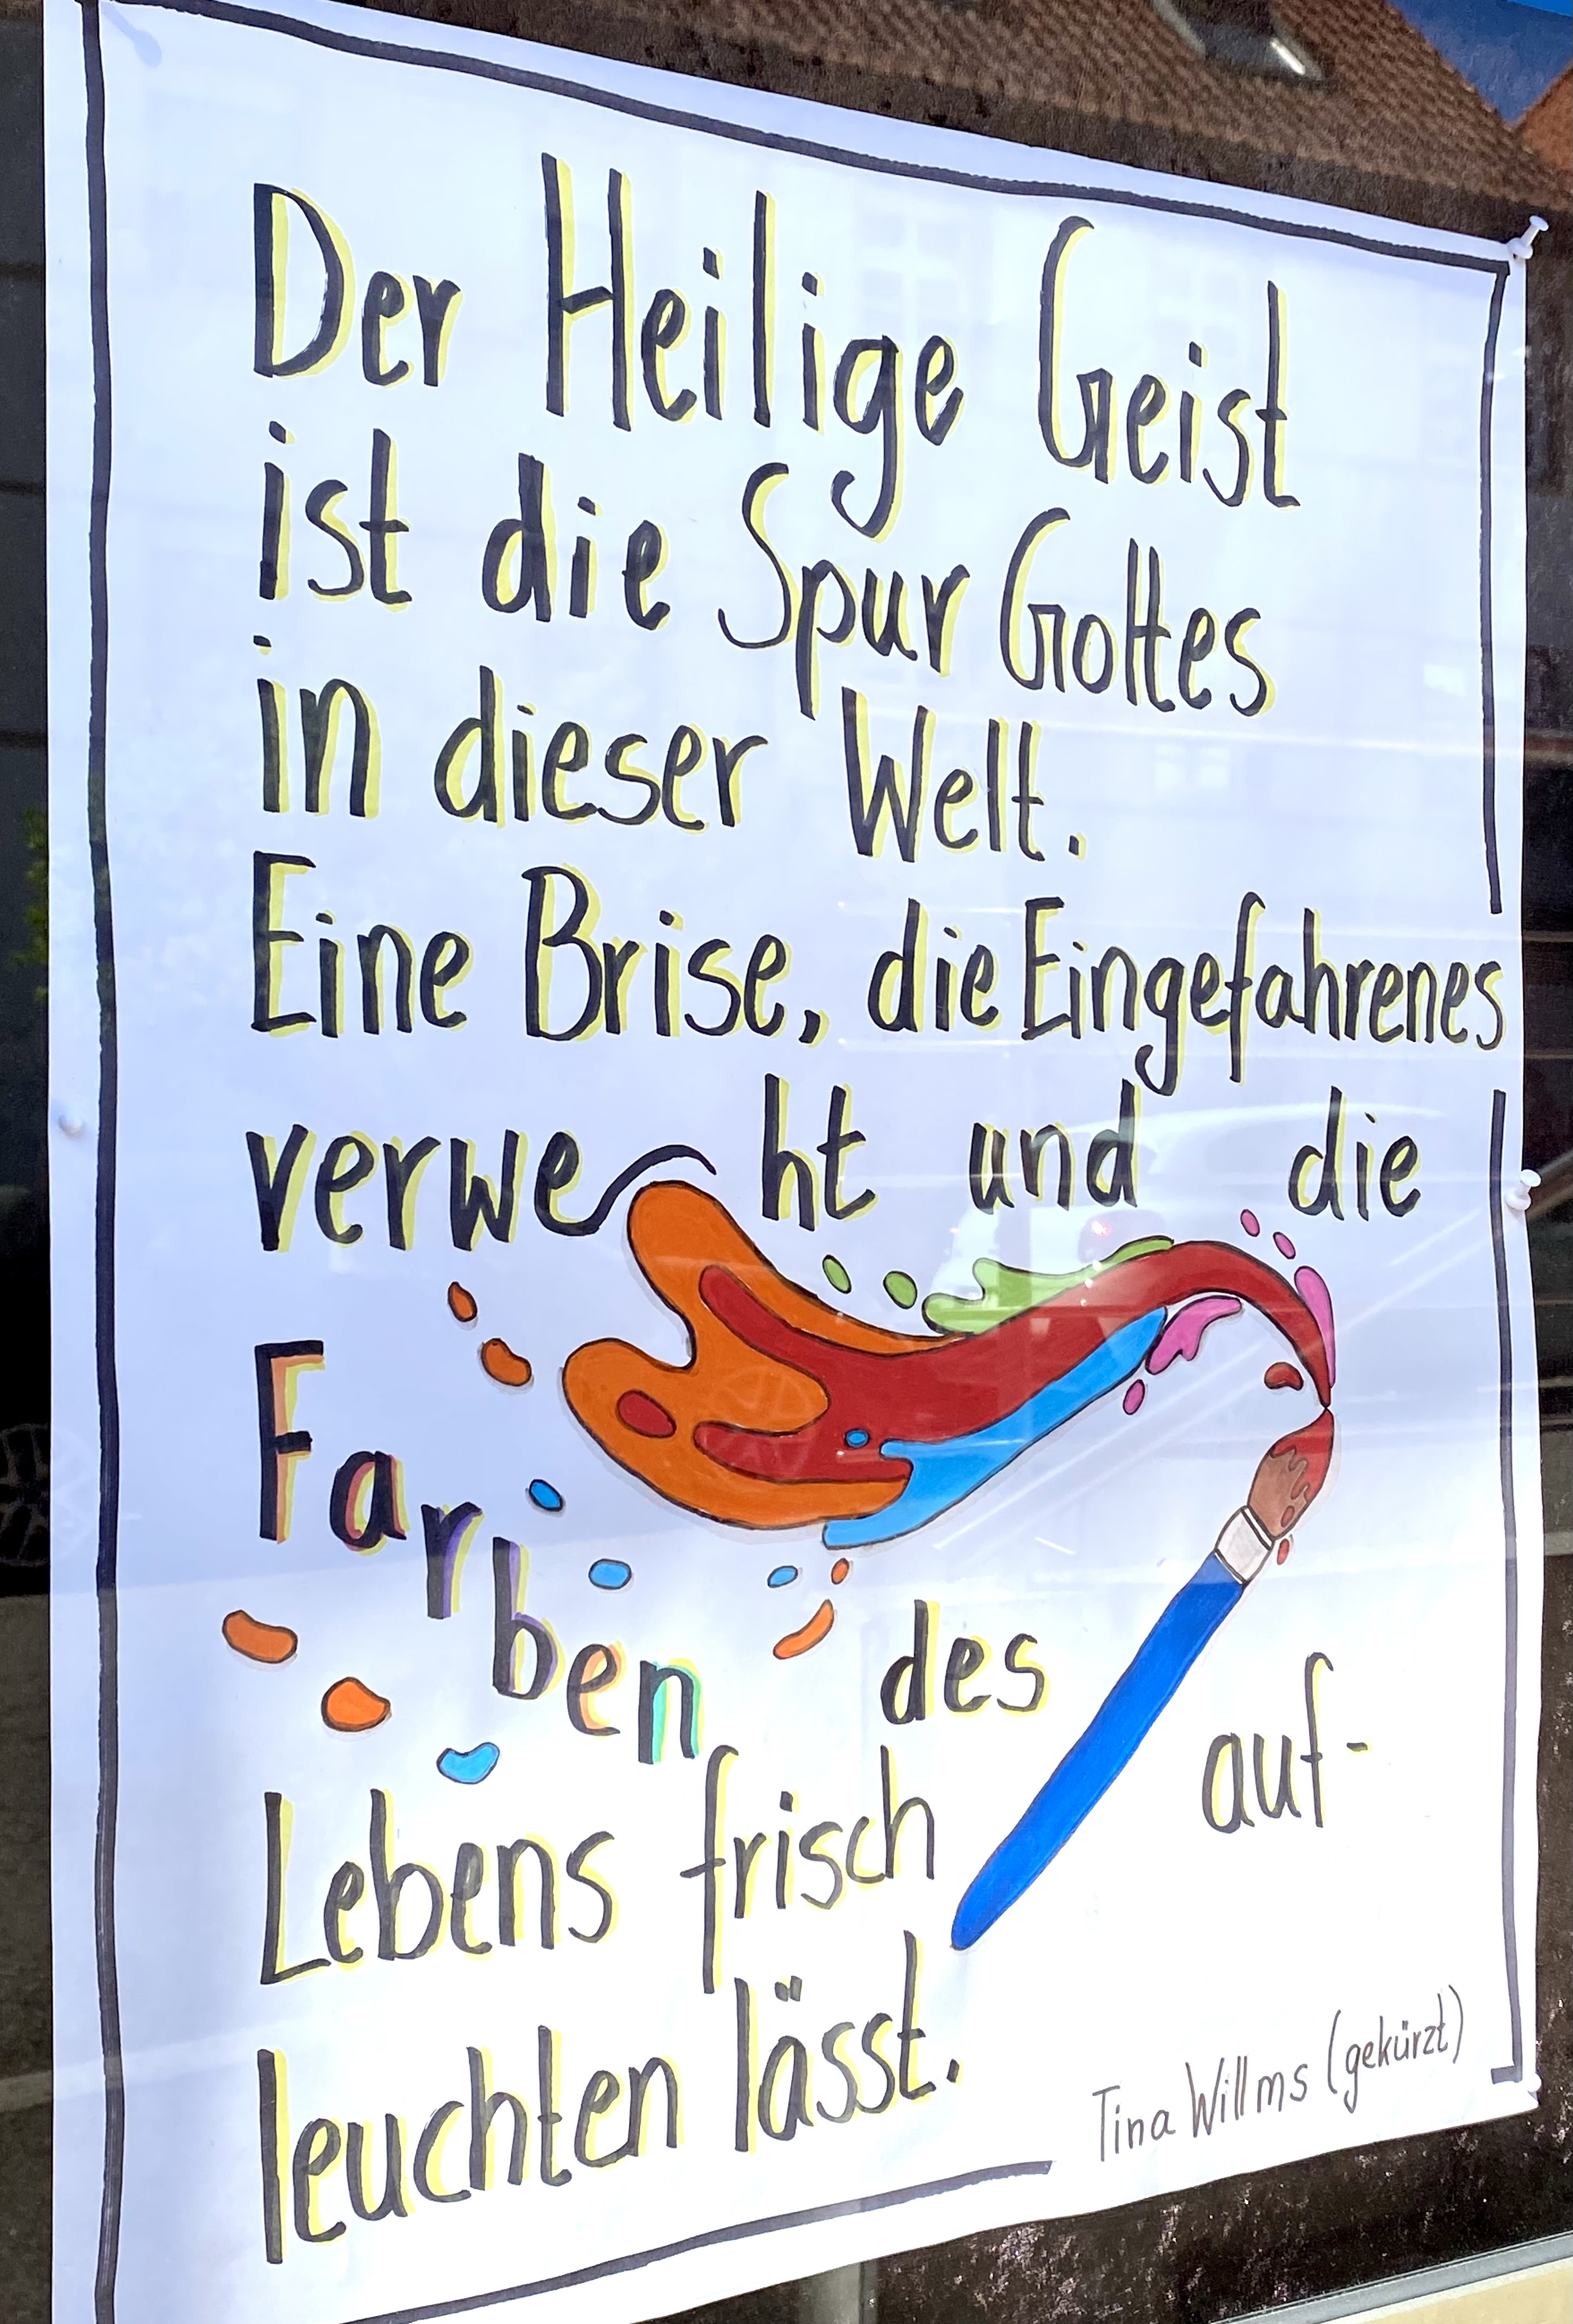 Der Heilige Geist
ist die Spur Gottes
in dieser Welt.
Eine Brise, die Eingefahrenes
verweht und die
Farben des
Lebens frisch auf-
leuchten lässt.
Tina Willms (gekürzt)